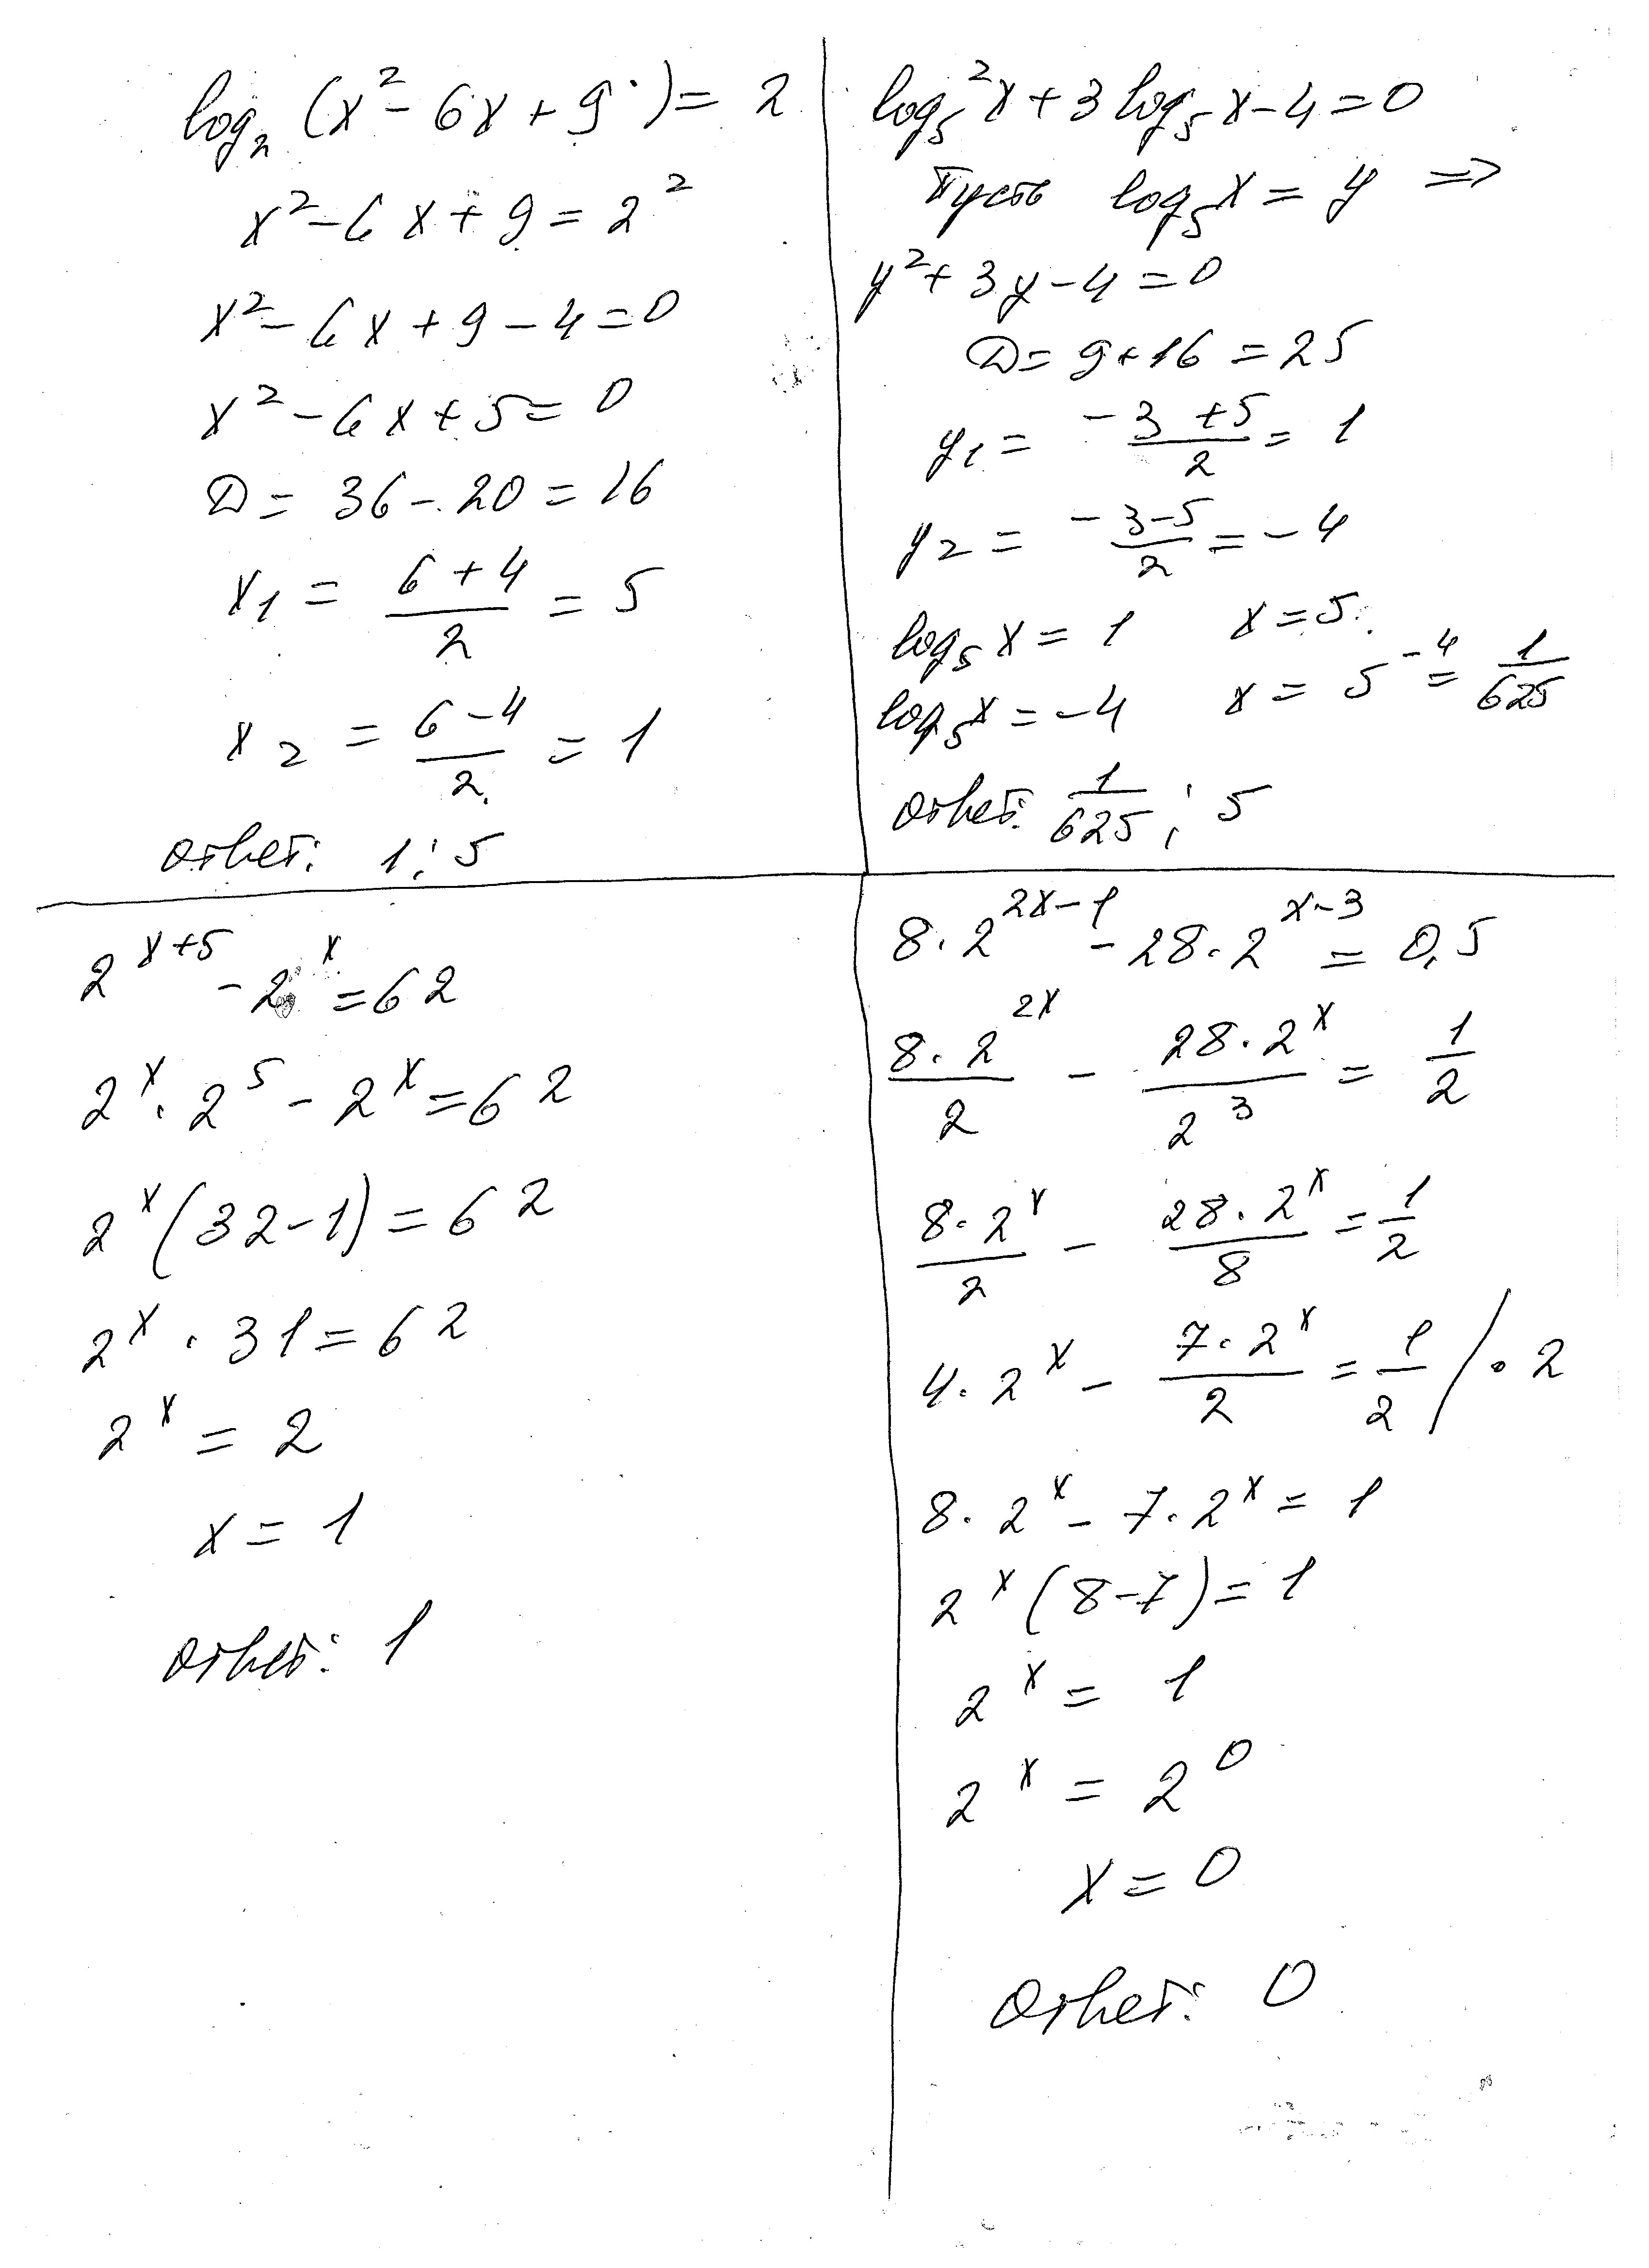 log₂ (x² - 6x + 9) = 2
x² - 6x + 9 = 2²
x² - 6x + 9 - 4 = 0
x² - 6x + 5 = 0
D = 36 - 20 = 16
x₁ = (6 + 4)/2 = 5
x₂ = (6 - 4)/2 = 1
Ответ: 1; 5
log₅²x + 3 log₅x - 4 = 0
Пусть log₅x = y ⇒
y² + 3y - 4 = 0
D = 9 + 16 = 25
y₁ = (-3 + 5)/2 = 1
y₂ = (-3 - 5)/2 = -4
log₅x = 1 x = 5
log₅x = -4 x = 5⁻⁴ = 1/625
Ответ: 1/625; 5
2^(x+5) - 2^x = 62
2^x · 2⁵ - 2^x = 62
2^x (32 - 1) = 62
2^x · 31 = 62
2^x = 2
x = 1
Ответ: 1
8 · 2^(2x-1) - 28 · 2^(x-3) = 0,5
(8 · 2^(2x))/2 - (28 · 2^x)/2³ = 1/2
(8 · 2^x)/2 - (28 · 2^x)/8 = 1/2
4 · 2^x - (7 · 2^x)/2 = 1/2 / · 2
8 · 2^x - 7 · 2^x = 1
2^x (8 - 7) = 1
2^x = 1
2^x = 2⁰
x = 0
Ответ: 0